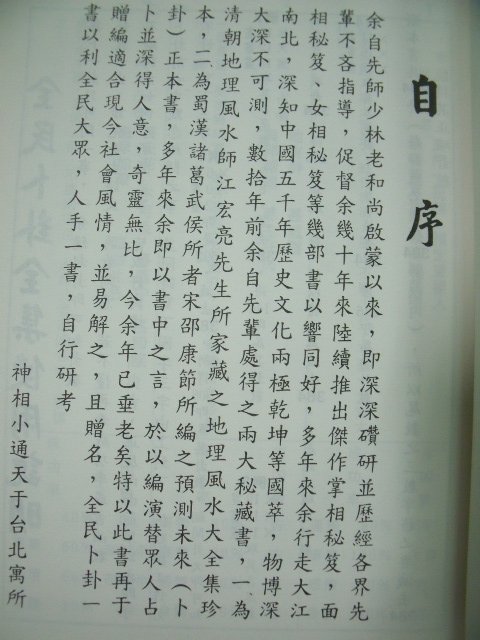 自序
余自先師少林老和尚啟蒙以來，即深深鑽研並歷經各界先
輩不吝指導，促督余幾十年來陸續推出傑作掌相秘笈，面
相秘笈、女相秘笈等幾部書以響同好，多年來余行走大江
南北，深知中國五千年歷史文化兩極乾坤等國萃，物博深
大深不可測，數拾年前余自先輩處得之兩大秘藏書，一為
清朝地理風水師江宏亮先生所家藏之地理風水大全集珍
本，二為蜀漢諸葛武侯所者宋邵康節所編之預測未來（卜
卦）正本書，多年來余即以書中之言，於以編演替眾人占
卜並深得人意，奇靈無比，今余年已垂老矣特以此書再于
贈編適合現今社會風情，並易解之，且贈名，全民卜卦一
書以利全民大眾，人手一書，自行研考
神相小通天于台北寓所